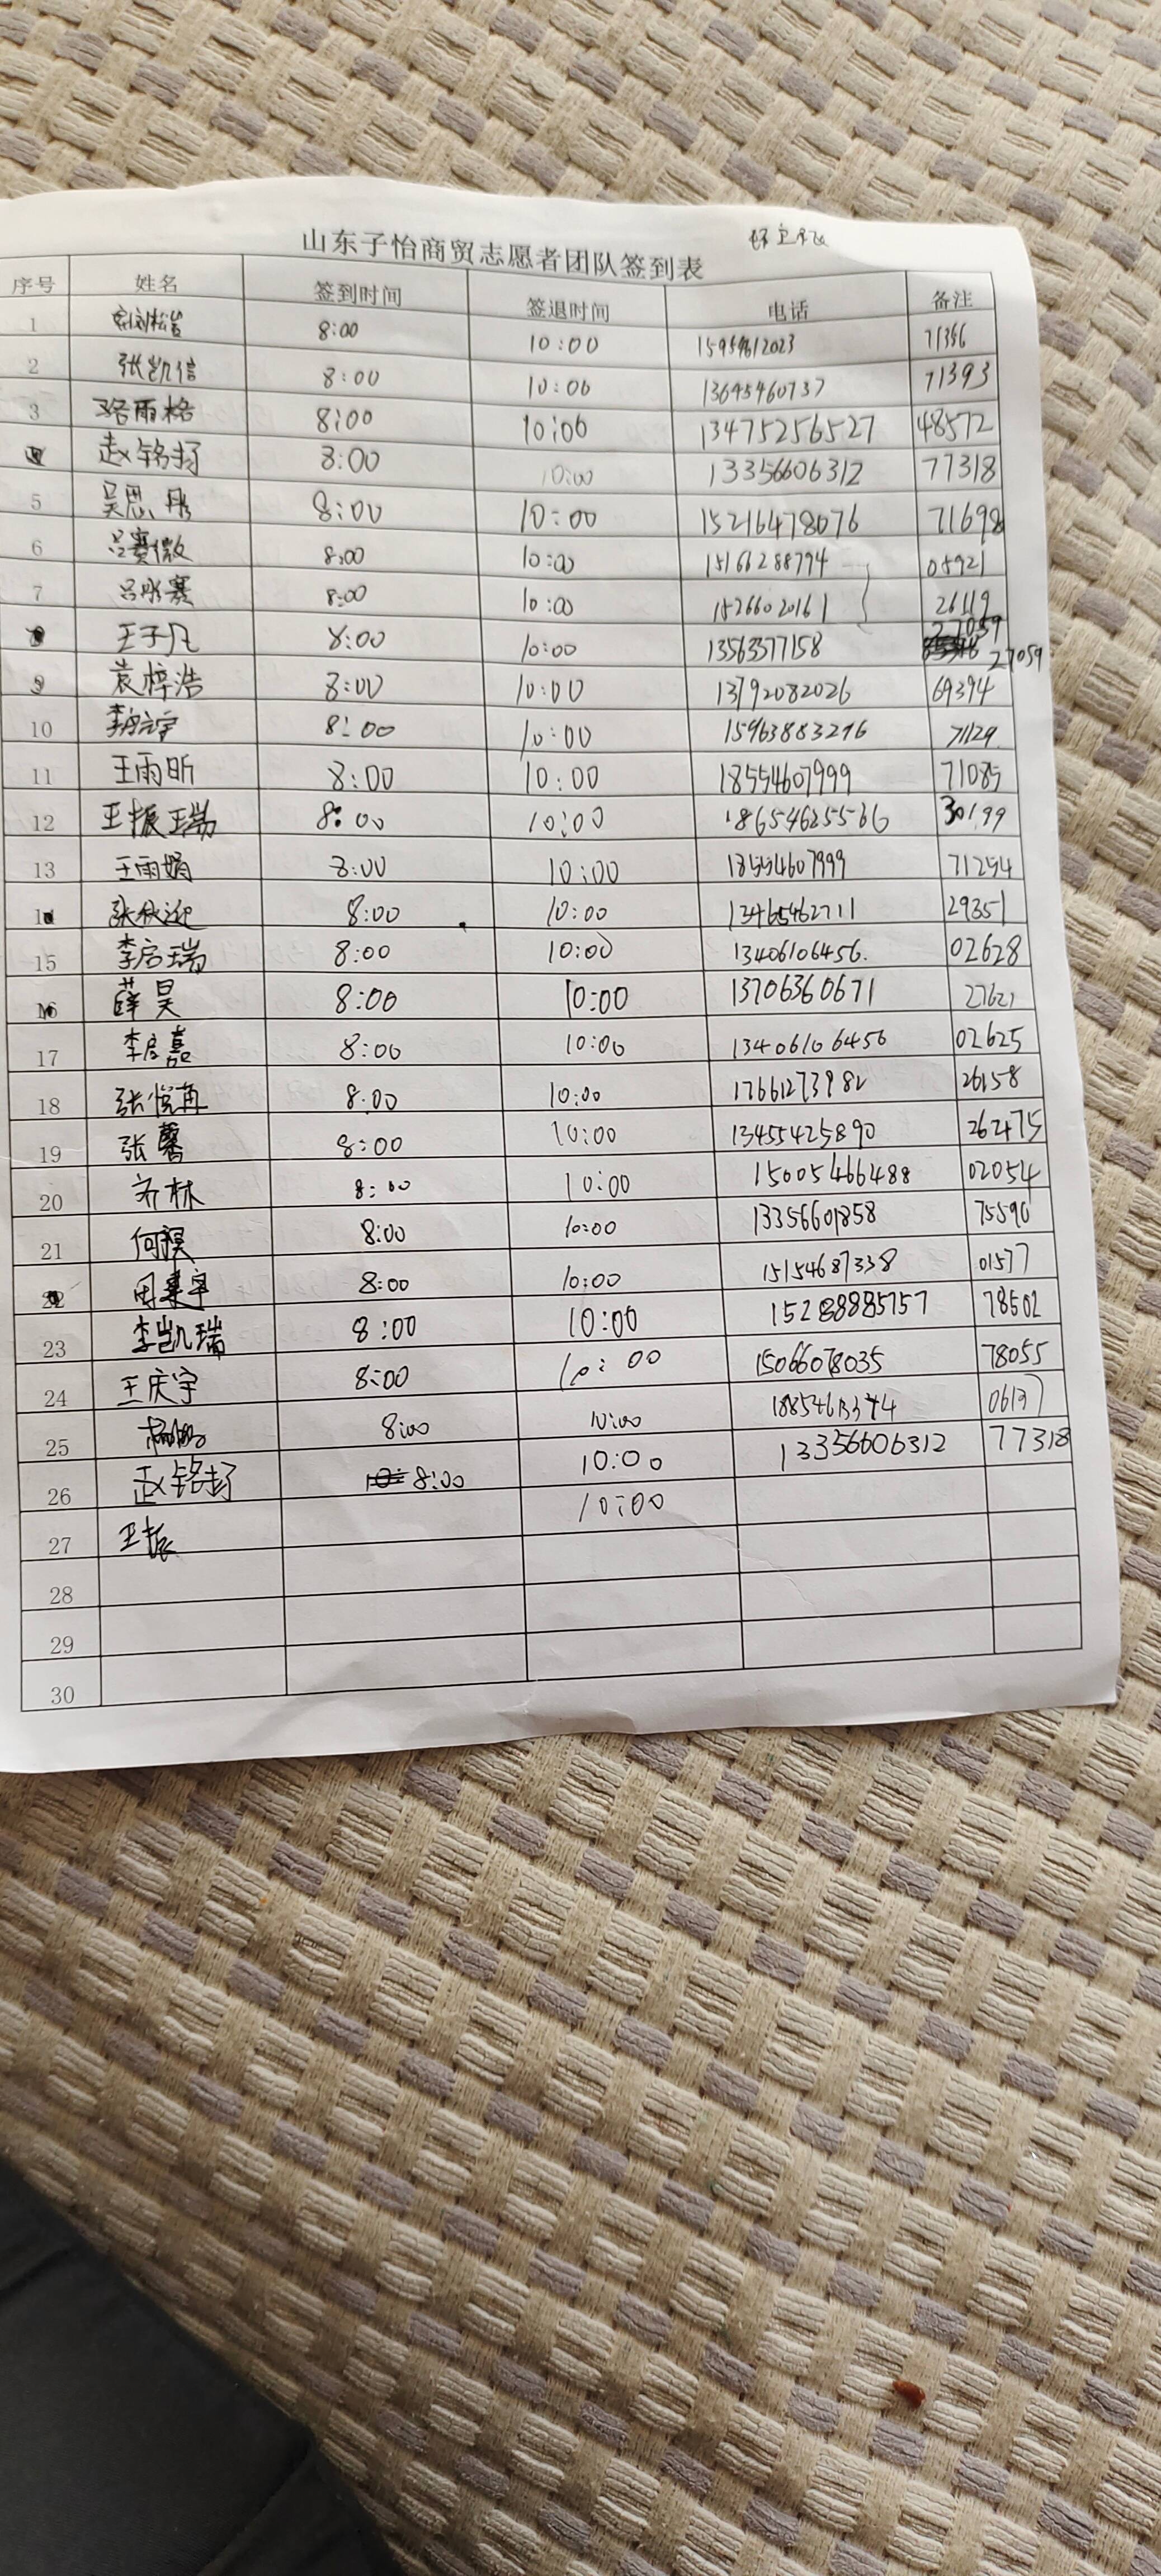 山东子怡商贸志愿者团队签到表
序号 姓名 签到时间 签退时间 电话 备注
1 8:00 10:00 15954612023 71356
2 张凯信 8:00 10:00 13645460737 71393
3 路雨格 8:00 10:00 13475256527 48572
赵铭扬 8:00 10:00 13356606312 77318
5 吴思彤 8:00 10:00 15216478076 71698
6 吕赛微 8:00 10:00 15166288794 05921
7 吕彤赛 8:00 10:00 15266020161 26119
8 王子凡 8:00 10:00 13563377158 27059 27059
9 袁梓浩 8:00 10:00 13792082026 69394
10 8:00 10:00 15963883296 71129
11 王雨昕 8:00 10:00 18554607999 71085
12 王振瑞 8:00 10:00 18654625526 30199
13 王雨娟 8:00 10:00 18554607999 71254
14 张秋迎 8:00 10:00 13465462711 29351
15 李启瑞 8:00 10:00 13406106456 02628
16 薛昊 8:00 10:00 13706360671 27621
17 李启嘉 8:00 10:00 13406106456 02625
18 张悦苒 8:00 10:00 17661273982 26158
19 张馨 8:00 10:00 13455425890 262475
20 齐林 8:00 10:00 15005466488 02054
21 何祺 8:00 10:00 13356601858 75590
22 8:00 10:00 15154687338 01577
23 李凯瑞 8:00 10:00 15288885757 78502
24 王庆宇 8:00 10:00 15066078035 78055
25 8:00 10:00 06137
26 赵铭扬 8:00 10:00 13356606312 77318
27 王振 10:00
28
29
30